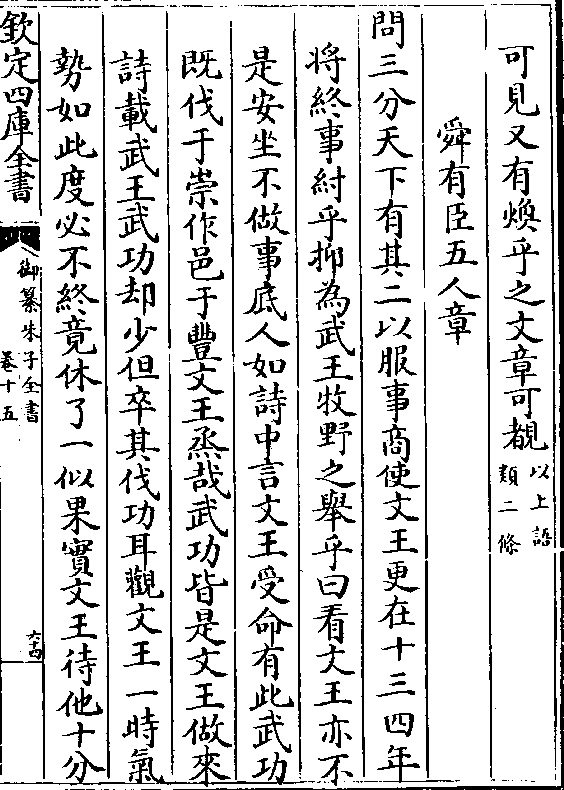 可見又有煥乎之文章可覩以上語類二條
舜有臣五人章
問三分天下有其二以服事商使文王更在十三四年
將終事紂乎抑為武王牧野之舉乎曰看文王亦不
是安坐不做事底人如詩中言文王受命有此武功
既伐于崇作邑于豐文王烝哉武功皆是文王做來
詩載武王武功却少但卒其伐功耳觀文王一時氣
勢如此度必不終竟休了一似果實文王待他十分
欽定四庫全書
御纂朱子全書
卷十五
六十四